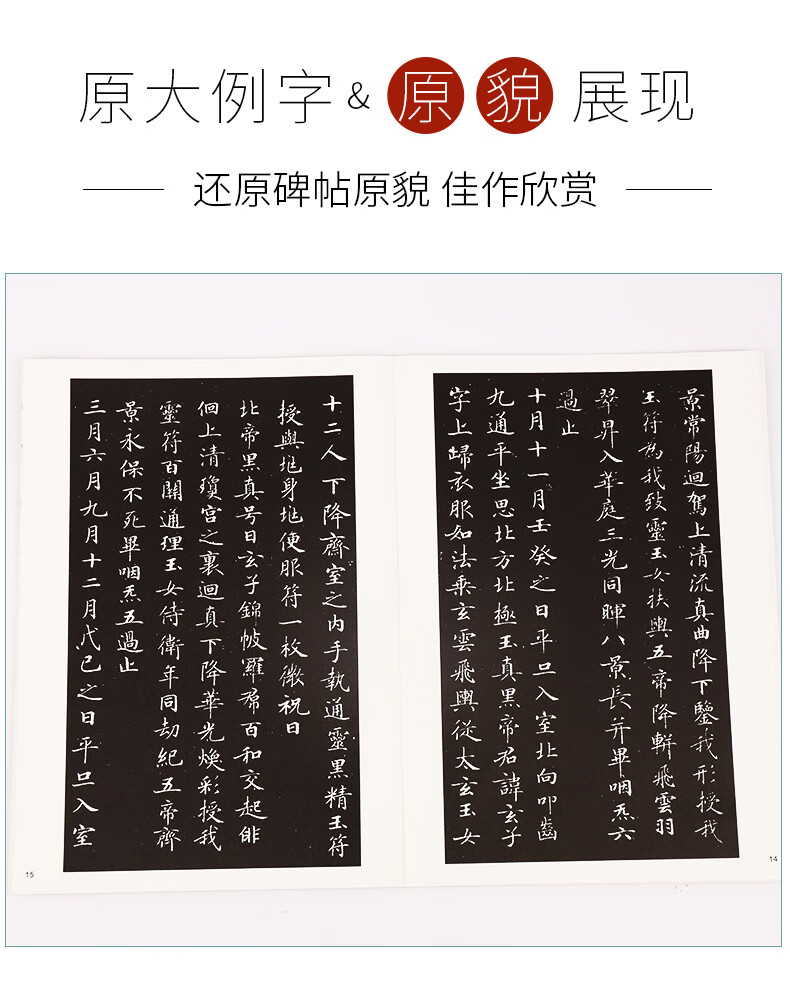 原大例字&原貌展现
还原碑帖原貌 佳作欣赏
景常陽迴駕上清流真曲降下鑒我形授我
玉符為我致靈玉女扶輿五帝降軿飛雲羽
翠昇入華庭三光同暉八景長并畢咽炁六
過止
十月十一月壬癸之日平旦入室北向叩齒
九通平坐思北方北極玉真黑帝君諱玄子
字上歸衣服如法乘玄雲飛輿從太玄玉女
14
十二人下降齋室之内手執通靈黑精玉符
授與地身地便服符一枚微祝曰
北帝黑真号曰玄子錦帔羅帬百和交起俳
佪上清瓊宫之裏迴真下降華光煥彩授我
靈符百關通理玉女侍衛年同劫紀五帝齊
景永保不死畢咽炁五過止
三月六月九月十二月戊己之日平旦入室
15